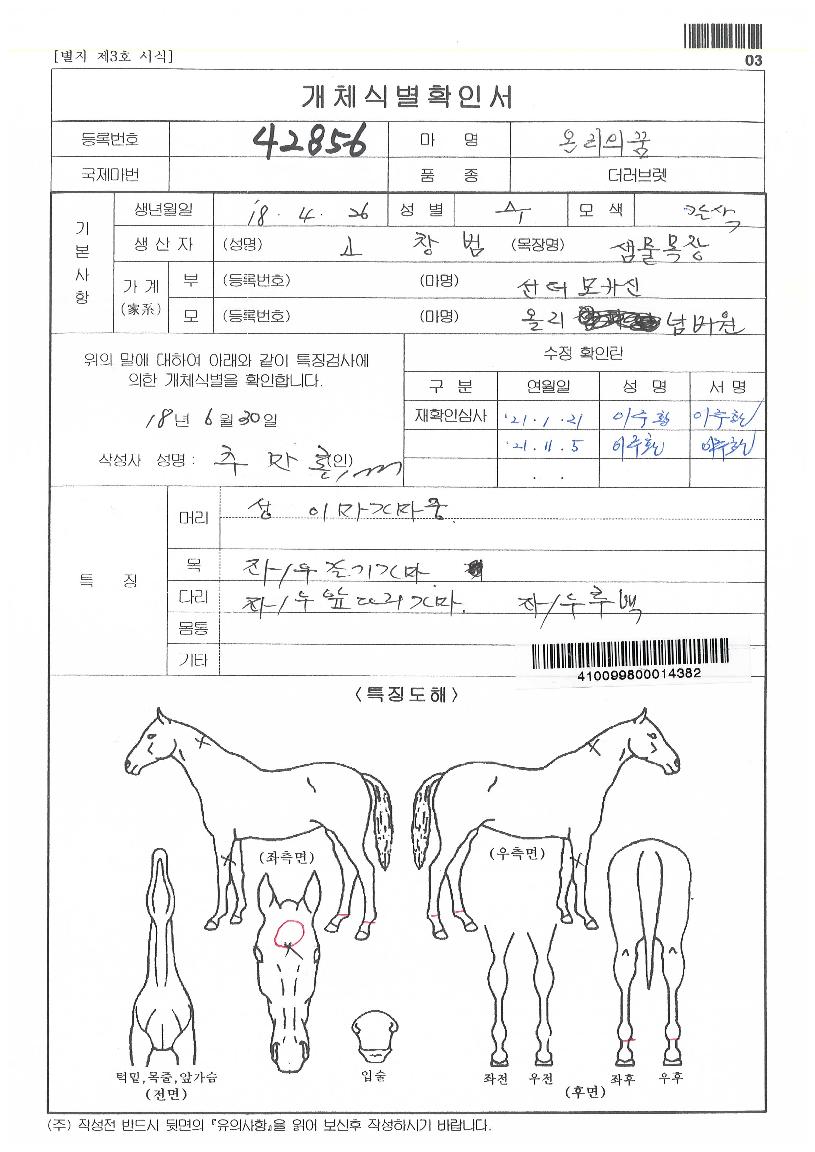 [별지 제3호 서식]
03
개체식별확인서
등록번호 42856 마 명 온리의꿈
국제마번 품 종 더러브렛
기본사항
생년월일 '18. 4. 26 성 별 수 모 색 갈색
생 산 자 (성명) 창 범 (목장명) 샘물목장
가 계 (家系) 부 (등록번호) (마명) 선더모카신
모 (등록번호) (마명) 올리 넘버원
위의 말에 대하여 아래와 같이 특징검사에
의한 개체식별을 확인합니다.
18년 6월 30일
작성사 성명 : 추 만 (인)
수정 확인란
구 분 연월일 성 명 서 명
재확인심사 '21. 1. 21
'21. 11. 5
. .
특 징
머리 성 이마가마중.
목 좌/우 줄기가마.
다리 좌/우앞다리가마. 좌/우후백
몸통
기타
410099800014382
<특징도해>
(좌측면) (우측면)
턱밑,목줄,앞가슴
(전면)
입술
좌전 우전 좌후 우후
(후면)
(주) 작성전 반드시 뒷면의 『유의사항』을 읽어 보신후 작성하시기 바랍니다.